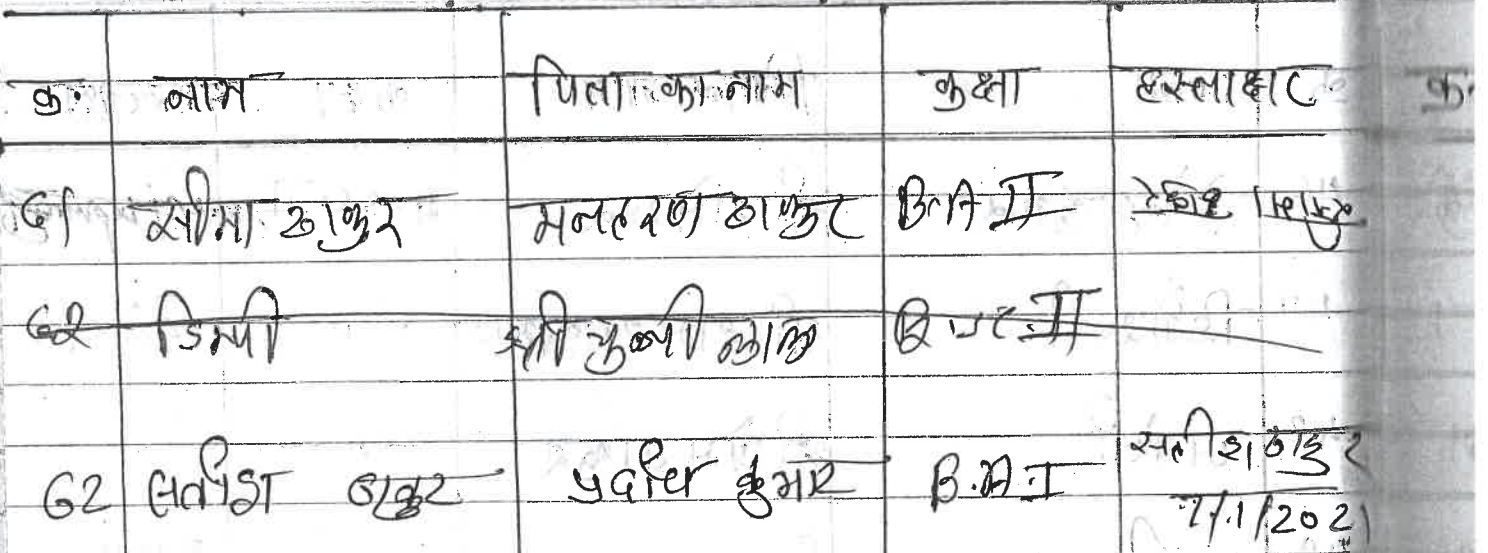 क्र. नाम पिता का नाम कक्षा हस्ताक्षर क्र.
61 सीमा ठाकुर मनहरण ठाकुर B.A II
62 डिम्पी श्री चुन्नी लाल II
62 सतीश ठाकुर प्रदीप कुमार B.A.I सतीश ठाकुर
7/1/2021